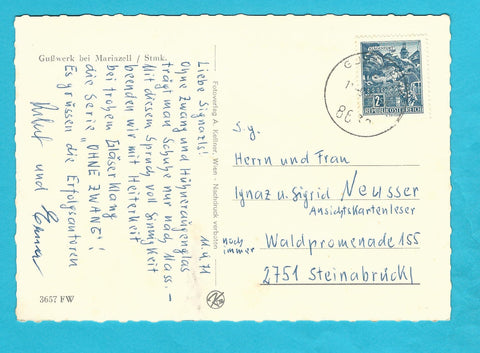 Gußwerk bei Mariazell / Stmk.
11.4.71
Liebe Signazls!
Ohne Zwang und Hühneraugenglas
trägt man Schuhe nur nach Mass –
Mit diesem Spruch voll Sinnigkeit
beenden wir mit Heiterkeit
bei frohem Gläserklang
die Serie „OHNE ZWANG"!
Es grüssen die Erfolgsautoren
und
Fotoverlag A. Kellner, Wien - Nachdruck verboten
3657 FW
2S
REPUBLIK ÖSTERREICH
S.g.
Herrn und Frau
Ignaz u. Sigrid Neusser
Ansichtskartenleser
noch immer
Waldpromenade 155
2751 Steinabrückl